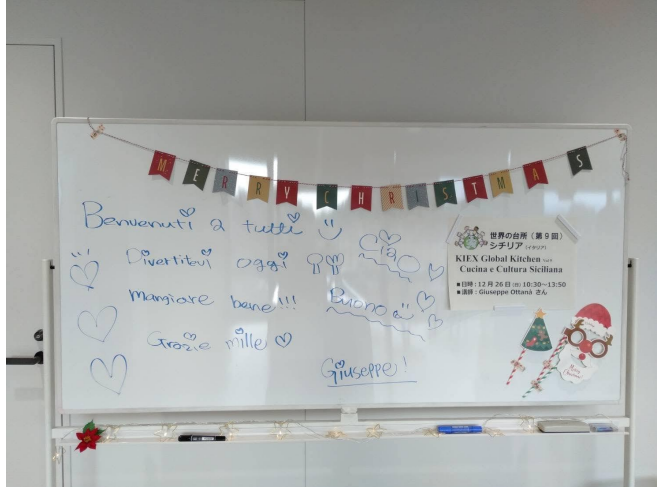 MERRY CHRISTMAS
Benvenuti a tutti
Divertitevi oggi
Mangiare bene!!!
Grazie mille
Ciao
Buono
Giuseppe!
世界の台所（第9回）
シチリア（イタリア）
KIEX Global Kitchen
Cucina e Cultura Siciliana
■日時：12月26日 10:30～13:50
■講師：Giuseppe Ottanà さん